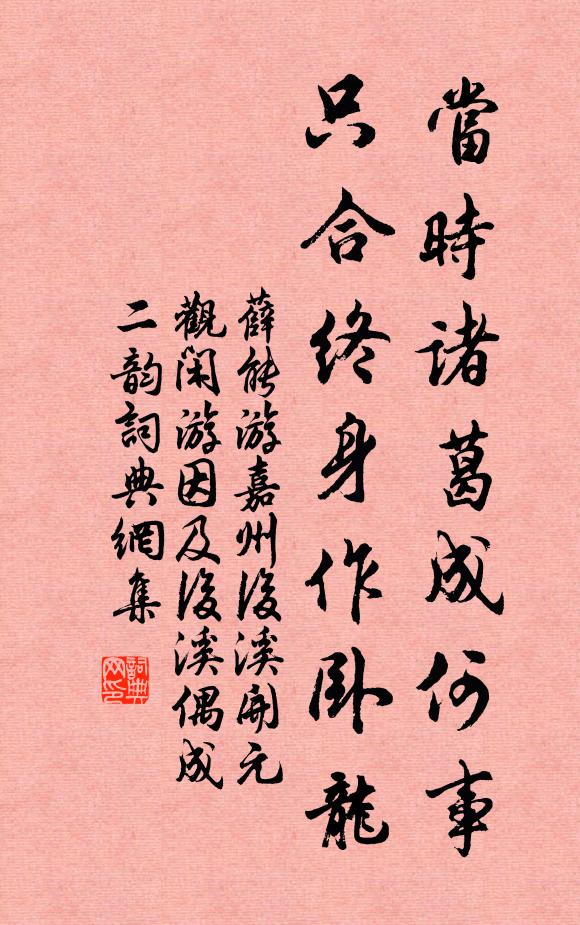 當時諸葛成何事
只合終身作卧龍
薛能游嘉州後溪開元
觀闲游因及後溪偶成
二韵詞典網集
詞典网印